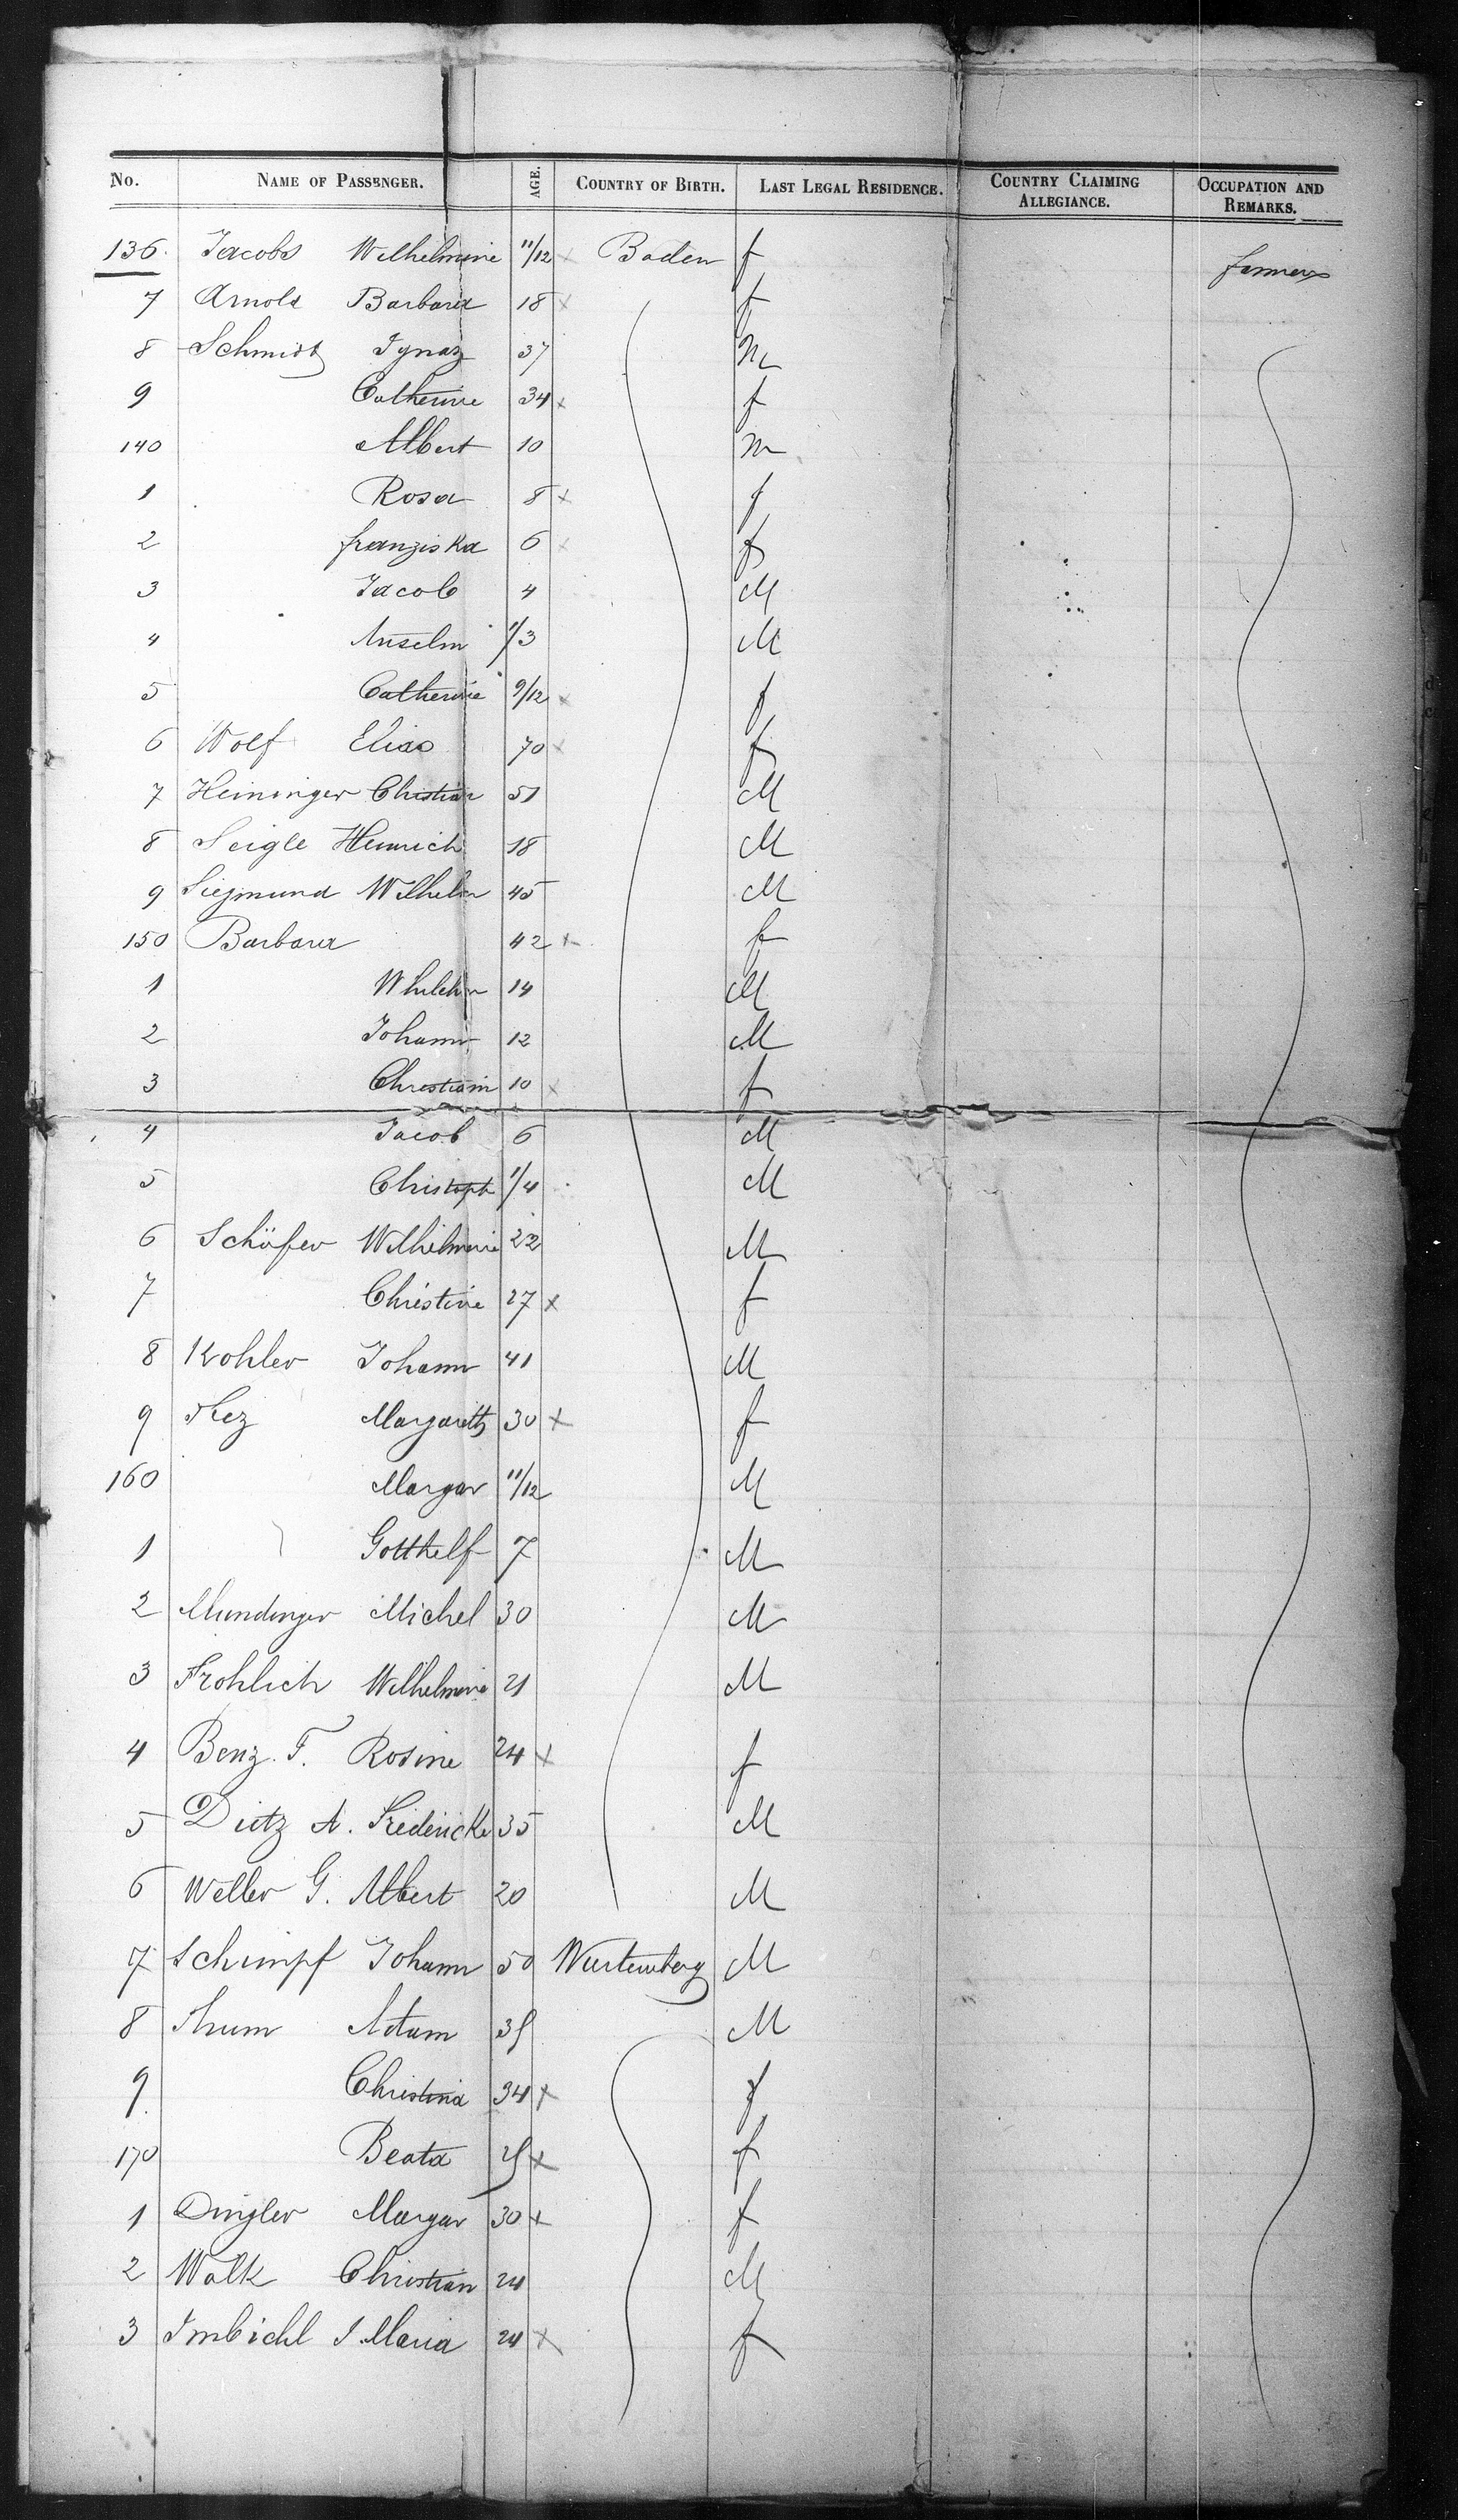 No. NAME OF PASSENGER. AGE. COUNTRY OF BIRTH. LAST LEGAL RESIDENCE. COUNTRY CLAIMING ALLEGIANCE. OCCUPATION AND REMARKS.
136. Jacobs Wilhelmine 11/12 x Baden f farmers
7 Arnold Barbara 18 x f
8 Schmidt Ignaz 37 M
9 Catherine 34 x f
140 Albert 10 M
1 Rosa 8 x f
2 franziska 6 x f
3 Jacob 4 M
4 Anselm 1/3 M
5 Catherine 9/12 x f
6 Wolf Elias 70 x f
7 Heininger Christian 51 M
8 Seigle Heinrich 18 M
9 Siegmund Wilhelm 45 M
150 Barbara 42 x f
1 Whilelm 14 M
2 Johann 12 M
3 Christiain 10 x f
4 Jacob 6 M
5 Christoph 1/4 M
6 Schöfer Wilhelmine 22 M
7 Christine 27 x f
8 Kohler Johann 41 M
9 Margareth 30 x f
160 Margar 11/12 M
1 Gotthelf 7 M
2 Mundinger Michel 30 M
3 Frohlich Wilhelmine 21 M
4 Benz. F. Rosine 24 x f
5 Dietz A. Fredericke 35 M
6 Weller G. Albert 20 M
7 Schimpf Johann 50 Wurtemberg M
8 Thum Adam 35 M
9 Christina 34 x f
170 Beata x f
1 Dingler Margar 30 x f
2 Walk Christian 24 M
3 Imbichl J. Maria 24 x f